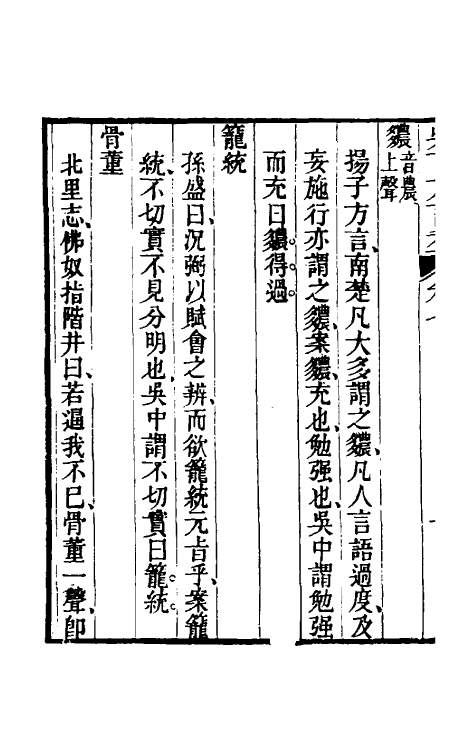 䁸音農上聲
揚子方言、南楚凡大多謂之䁸、凡人言語過度、及
妄施行亦謂之䁸、案䁸、充也、勉强也、吳中謂勉强
而充曰䁸。得。過。
籠統
孫盛曰、況弼以賦會之辨、而欲籠統元旨乎、案籠
統、不切實不見分明也、吳中謂不切實曰籠。統。
骨董
北里志、佛奴指階井曰、若逼我不已、骨董一聲、卽